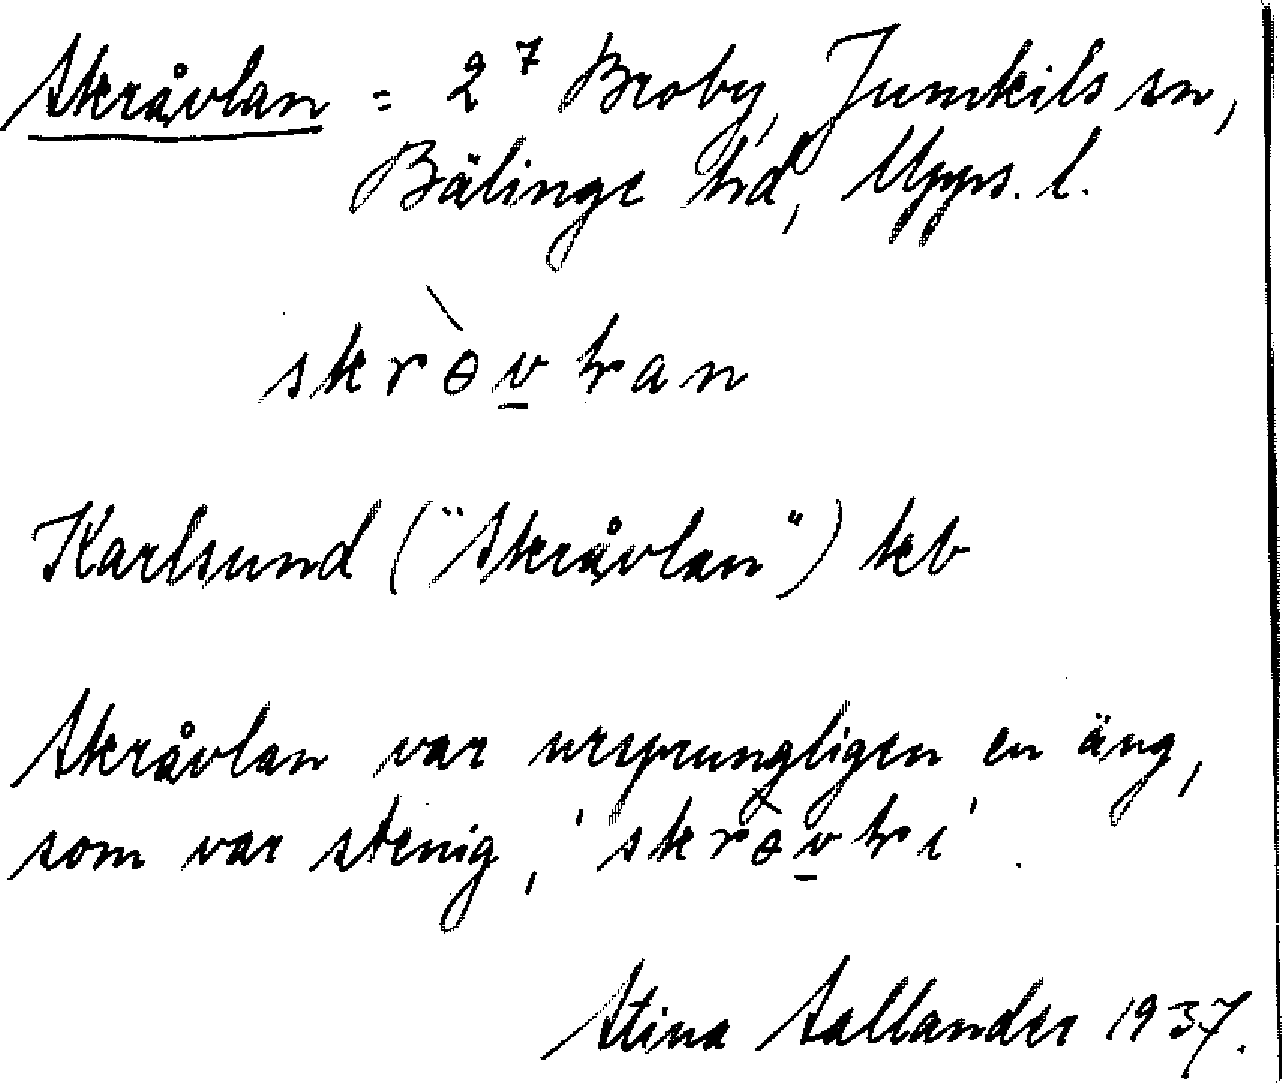 Skråvlan = 2⁷ Broby, Jumkils sn,
Bälinge hd, Upps. l.
skrɵ̀v̲ɽan
Karlsund ("Skråvlan") kb
Skråvlan var ursprungligen en äng,
som var stenig, 'skrɵ̀v̲ɽi'.
Stina Sallander 1937.